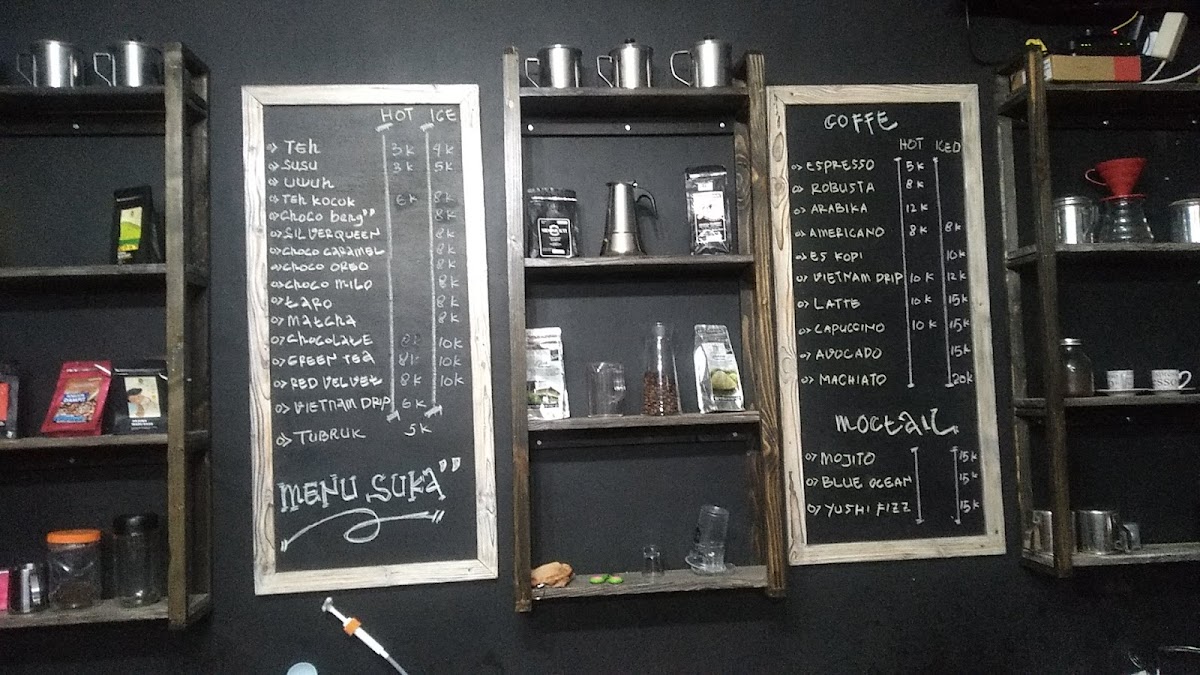 HOT ICE
TEH 3K 4K
SUSU 3K 5K
UWUH
TEH KOCOK 6K 8K
CHOCO BENG" 8K
SILVERQUEEN 8K
CHOCO CARAMEL 8K
CHOCO OREO 8K
CHOCO MILO 8K
TARO 8K
MATCHA 8K
CHOCOLATE 8K 10K
GREEN TEA 8K 10K
RED VELVET 8K 10K
VIETNAM DRIP 6K
TUBRUK 5K
MENU SUKA"
COFFE
HOT ICED
ESPRESSO 5K
ROBUSTA 8K
ARABIKA 12K
AMERICANO 8K 8K
ES KOPI 10K
VIETNAM DRIP 10K 12K
LATTE 10K 15K
CAPUCCINO 10K 15K
AVOCADO 15K
MACHIATO 20K
MOCTAIL
MOJITO 15K
BLUE OCEAN 15K
YUSHI FIZZ 15K